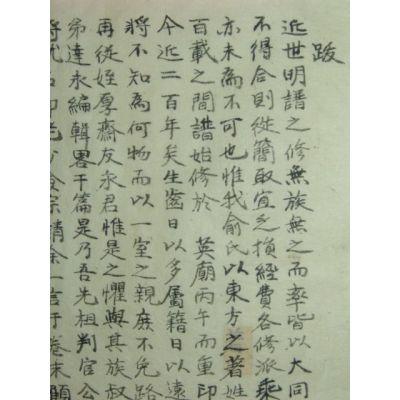 跋
近世明譜之修無族無之而率皆以大同
不得合則從簡取宜之損經費各修派乘
亦未爲不可也惟我俞氏以東方之著姓
百載之間譜始修於 英廟丙午而重印
今近二百年矣生齒日以多屬籍日以遠
將不知爲何物而以一室之親庶不免路
再從姪厚齋友永君惟是之懼與其族叔
達永編輯畧干篇是乃吾先祖判官公
余一言于卷末顧